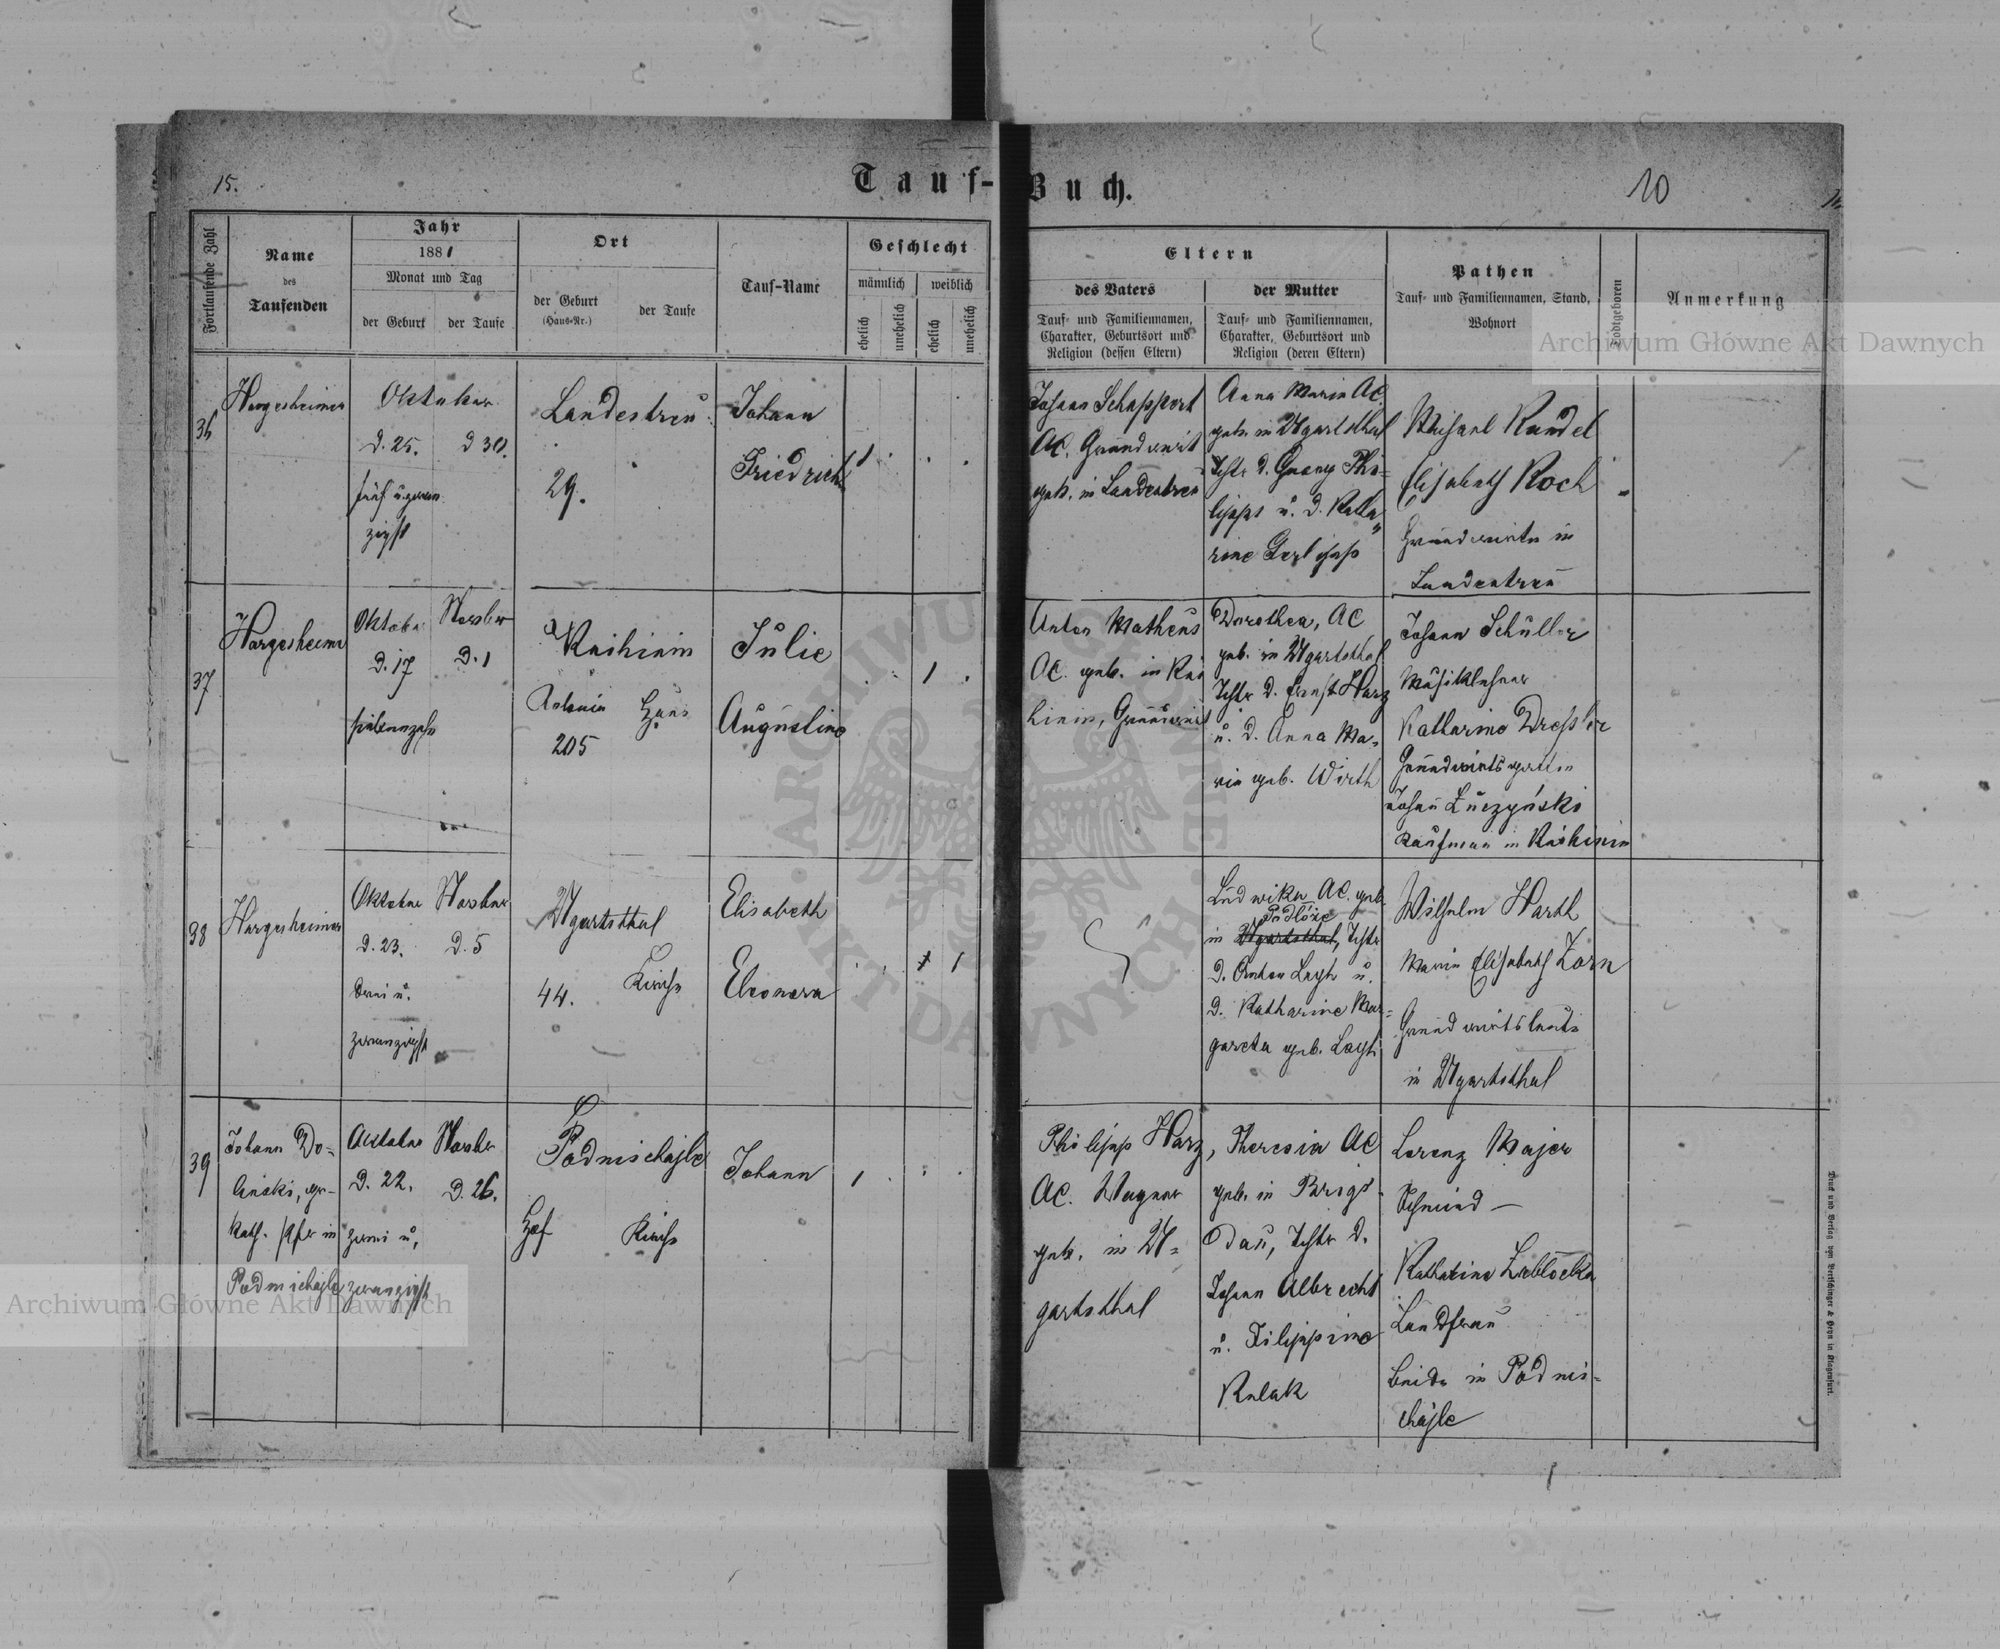 15.
Tauf-Buch.
10
Fortlaufende Zahl
Name
des
Taufenden
Jahr
1881
Monat und Tag
der Geburt
der Taufe
Ort
der Geburt
(Haus-Nr.)
der Taufe
Tauf-Name
Geschlecht
männlich
weiblich
ehelich
unehelich
ehelich
unehelich
Eltern
des Vaters
Tauf- und Familiennamen,
Charakter, Geburtsort und
Religion (dessen Eltern)
der Mutter
Tauf- und Familiennamen,
Charakter, Geburtsort und
Religion (deren Eltern)
Pathen
Tauf- und Familiennamen, Stand,
Wohnort
Todtgeboren
Anmerkung
Archiwum Główne Akt Dawnych
36
Hargesheimer
Oktober
d. 25. d 30.
fünf u zwan
zigst
Landestreu
29.
Johann
Friedrich
1
Johann Schappert
AC. Grundwirt
geb. in Landestreu
Anna Maria AC.
geb. in Ugartsthal
Tchtr d. Georg Phi-
lipps u. d. Katha
rine
Michael Kandel
Elisabeth Koch
Grundwirte in
Landestreu
37
Hargesheimer
Oktober Novber
d. 17 d. 1
siebenzehn
Kaihinin
Haus
205
Julie
Augustine
1
Anton Matheus
AC. geb. in Kai
hinin, Grundwirt
Dorothea, AC
geb. in Ugartsthal
Tchtr d. Ernst Harz
u. d. Anna Ma-
ria geb. Wirth
Johann Schüller
Musiklehrer
Katharine Dressler
Grundwirtsgattin
Johan Łuczyński
Kaufman in Kaihinin
38
Hargesheimer
Oktober Novber
d. 23. d. 5
drei u.
zwanzigst
Ugartsthal
44. Kirche
Elisabeth
Eleonora
1 1
Ludwika AC. geb.
Podłóże
in Ugartsthal, Tchtr
d. Anton u.
d. Katharine Mar-
gareta geb.
Wilhelm Harth
Maria Elisabeth Zorn
Grundwirtsleute
in Ugartsthal
39
Johann Do-
liński, gr-
kath. Pfr in
Podmichajle
Oktober Novber
d. 22. d. 26.
zwei u.
zwanzigst
Podmichajle
Hof Kirche
Johann
1
Philipp Harz,
AC. Wagner
geb. in U-
gartsthal
Theresia AC
geb. in Brigi-
dau, Tchtr d.
Johann Albrecht
u. Filippine
Kulak
Lorenz Majer
Schmied —
Katharine Zabłocka
Landfrau
beide in Podmi-
chajle
Druck und Verlag von Bertschinger & Heyn in Klagenfurt.
ARCHIWUM GŁÓWNE AKT DAWNYCH
Archiwum Główne Akt Dawnych